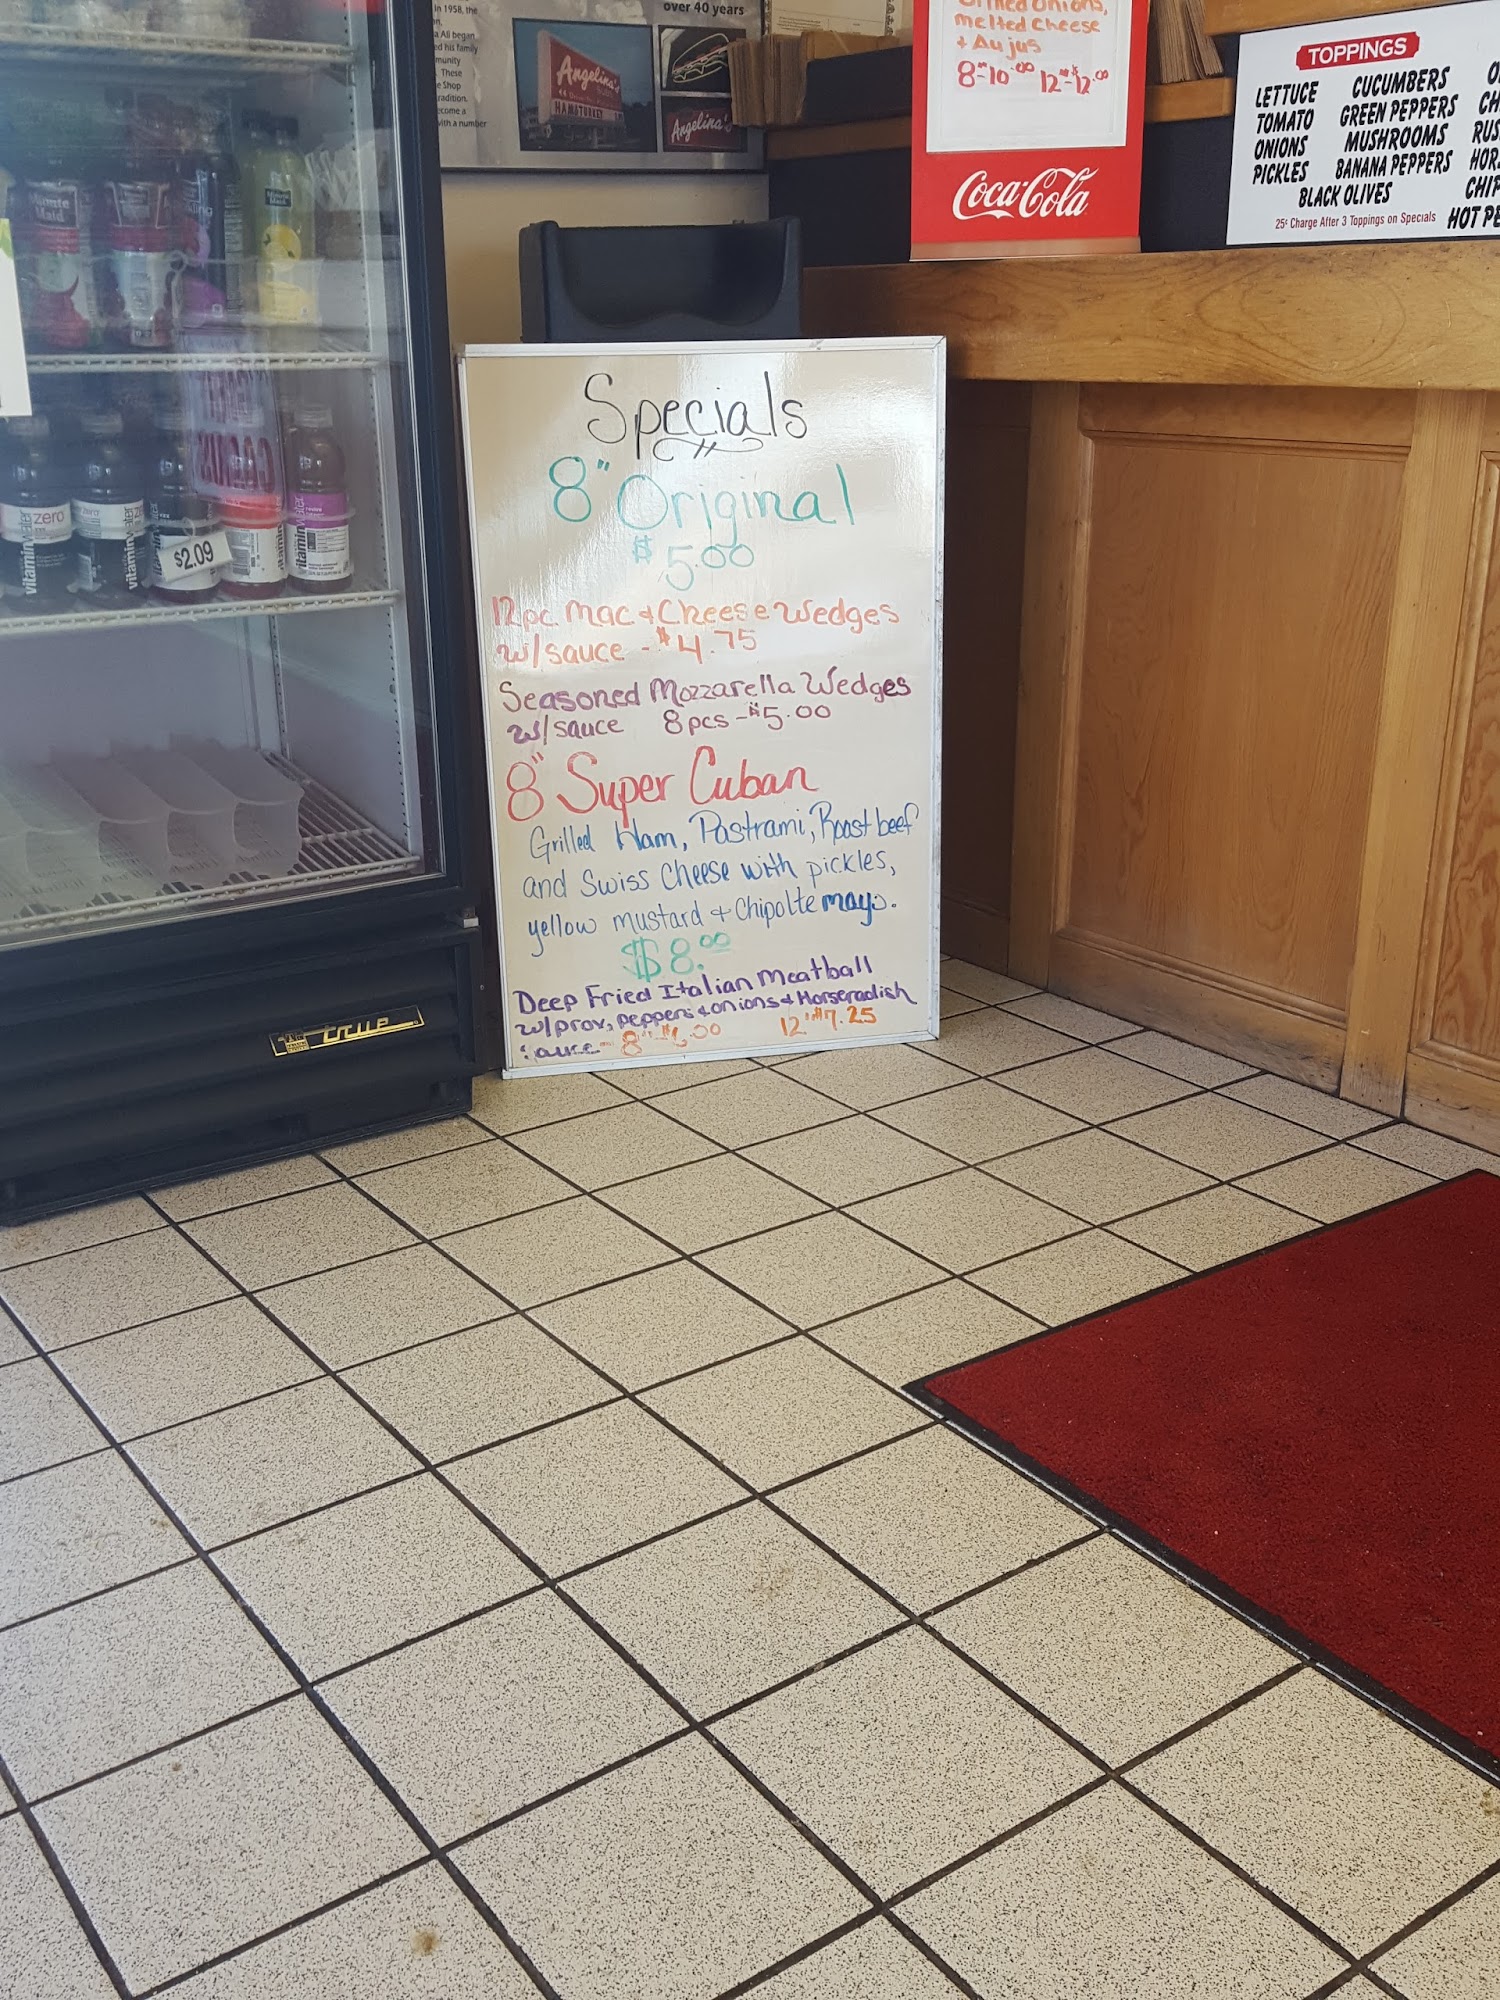 in 1958, the
a Ali began
ed his family
munity
These
e Shop
radition.
ecome a
with a number
over 40 years
Angelina's
HAMOTURKEY
Angelina's
melted cheese
+ Au jus
8"-10.00 12"-$12.00
Coca-Cola
TOPPINGS
LETTUCE
TOMATO
ONIONS
PICKLES
CUCUMBERS
GREEN PEPPERS
MUSHROOMS
BANANA PEPPERS
BLACK OLIVES
25¢ Charge After 3 Toppings on Specials
CH
RUS
HOR
CHIP
HOT PE
Minute
Maid
vitaminwater zero
vitaminwater
$2.09
true
Specials
8" Original
$5.00
12pc Mac & Cheese Wedges
w/sauce - $4.75
Seasoned Mozzarella Wedges
w/sauce 8pcs - $5.00
8" Super Cuban
Grilled Ham, Pastrami, Roast beef
and Swiss cheese with pickles,
yellow mustard + Chipolte mayo.
$8.00
Deep Fried Italian Meatball
w/prov, peppers & onions & Horseradish
sauce - 8" $6.00 12" $7.25